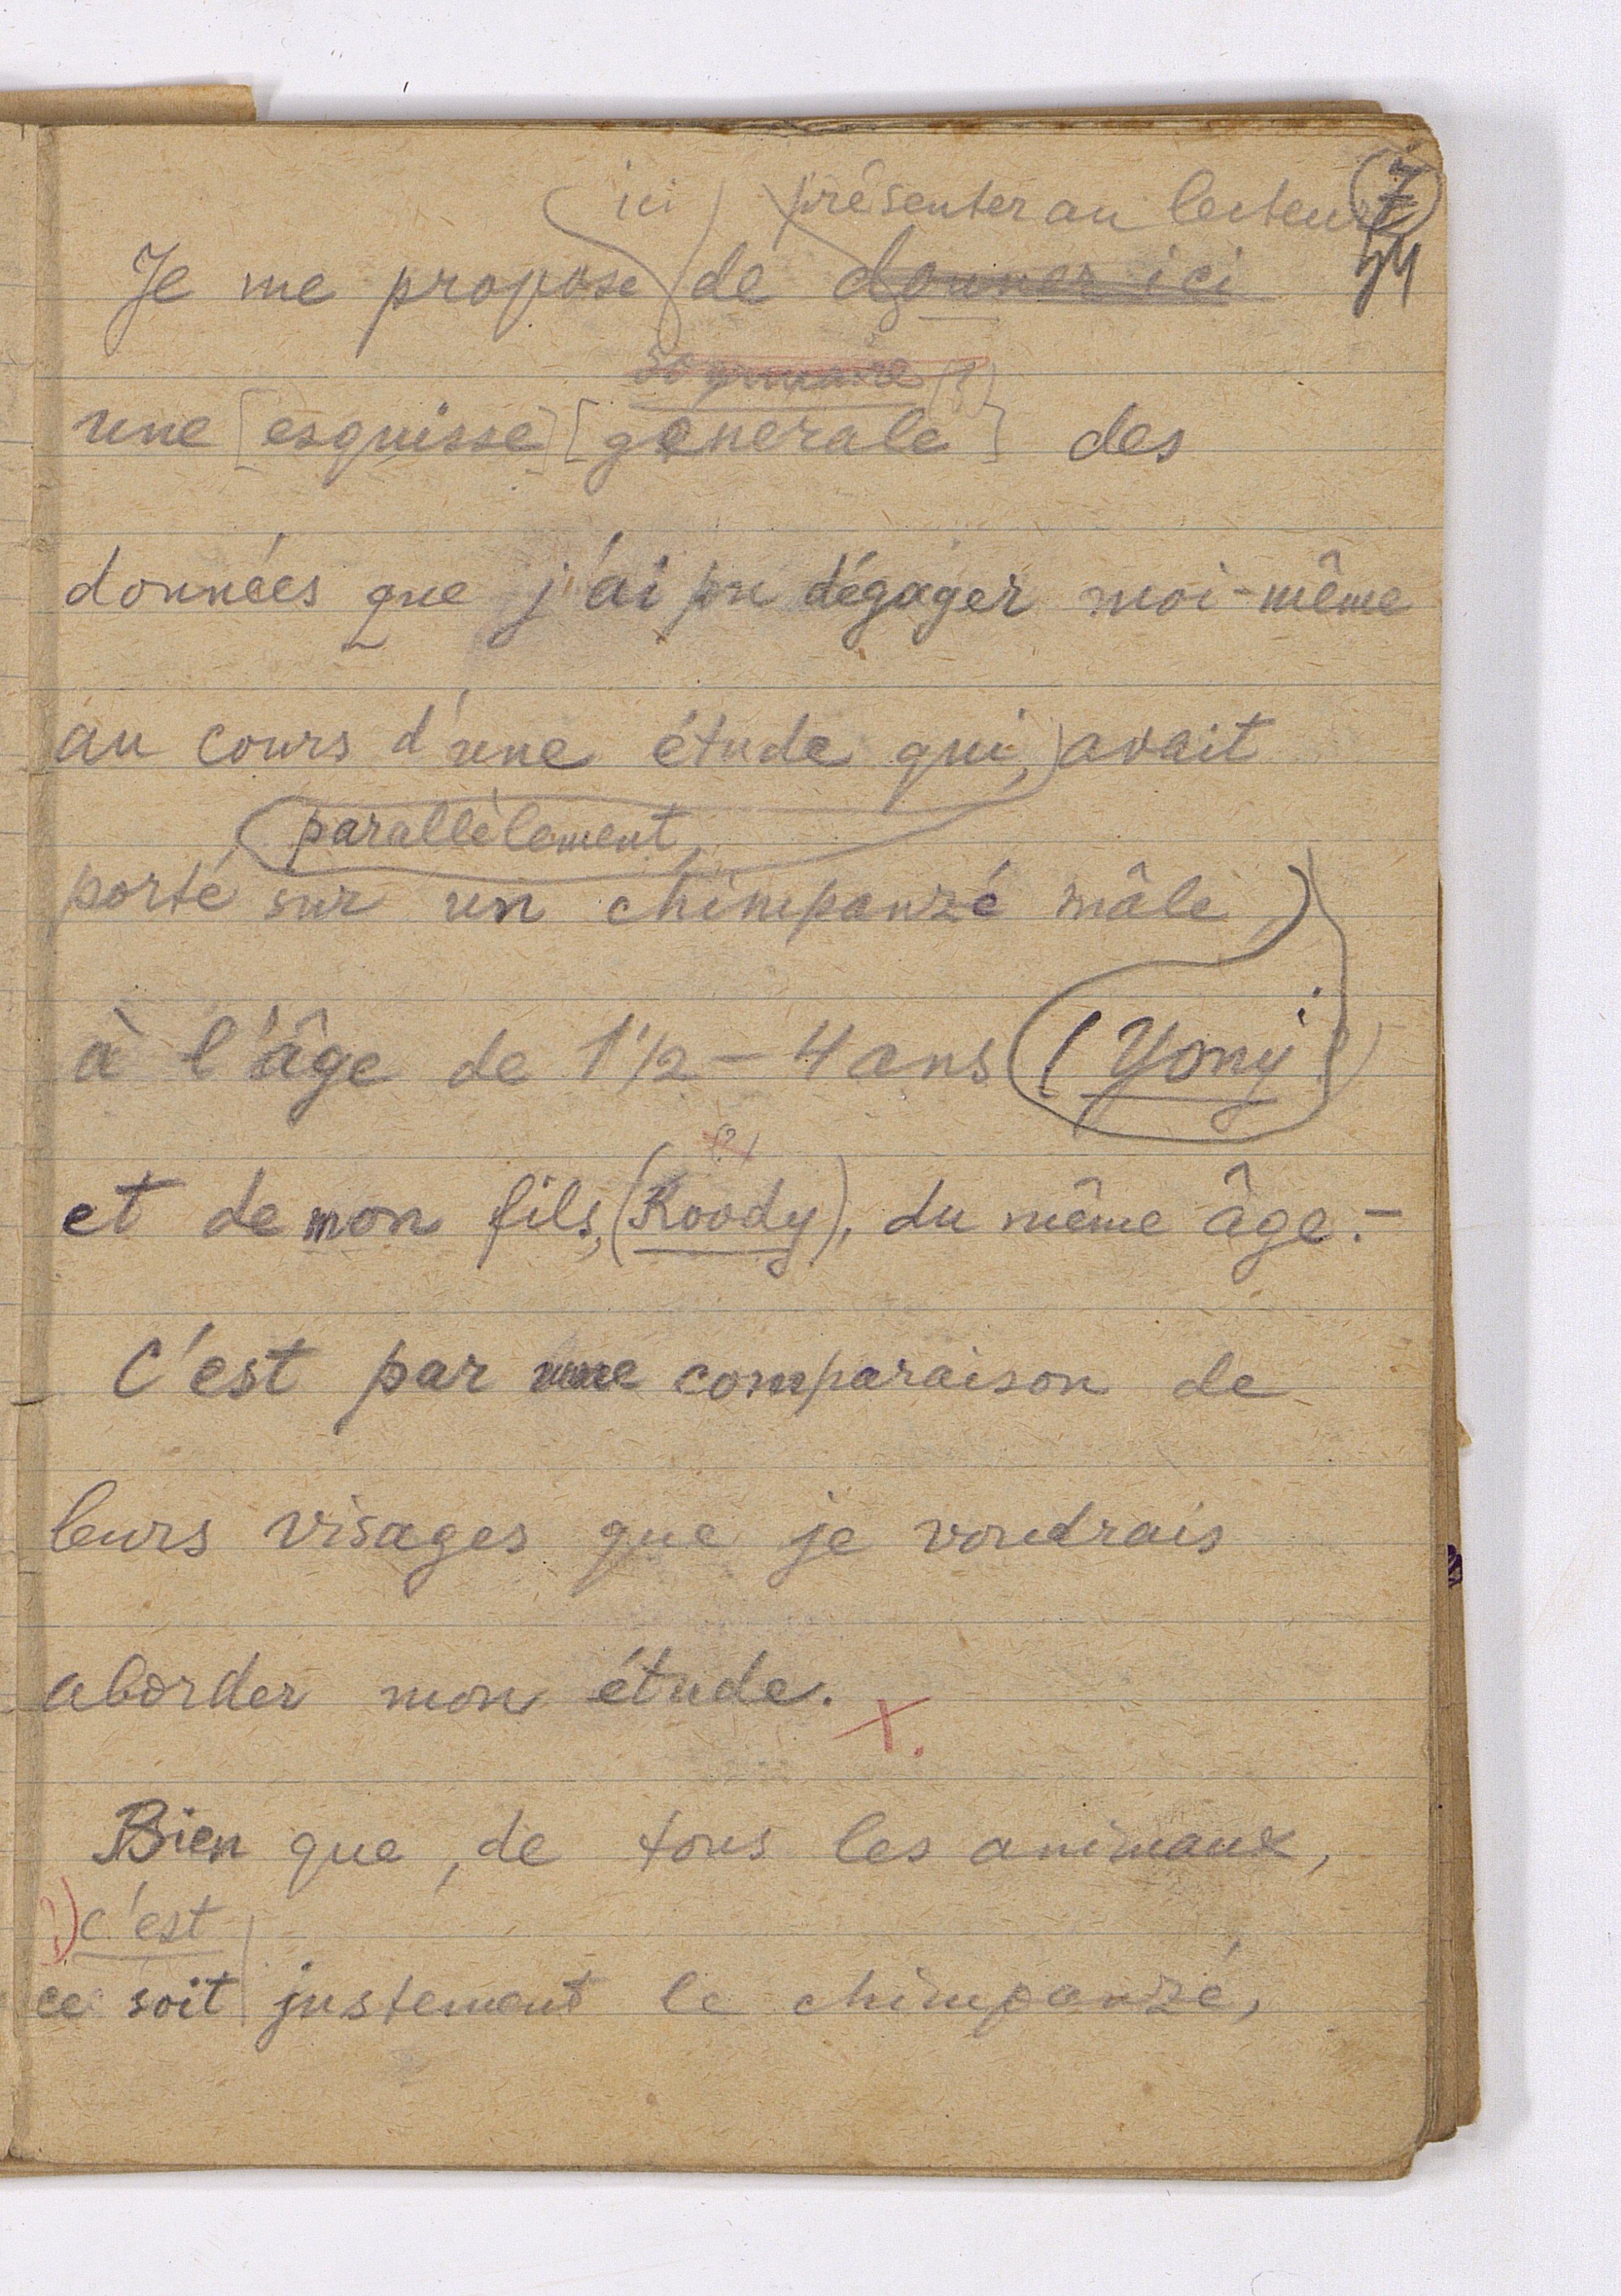 ici présenter au lecteur 7
Je me propose de donner ici
sommaire (?)
une [esquisse] [générale] des
données que j'ai pu dégager moi-même
au cours d'une étude qui, avait
parallèlement,
porté sur un chimpanzé mâle
à l'âge de 1 1/2 – 4 ans (Yony)
(?)
et de mon fils, (Roody), du même âge.–
C'est par une comparaison de
leurs visages que je voudrais
aborder mon étude. X.
Bien que, de tous les animaux,
?) c'est
ce soit justement le chimpanzé,